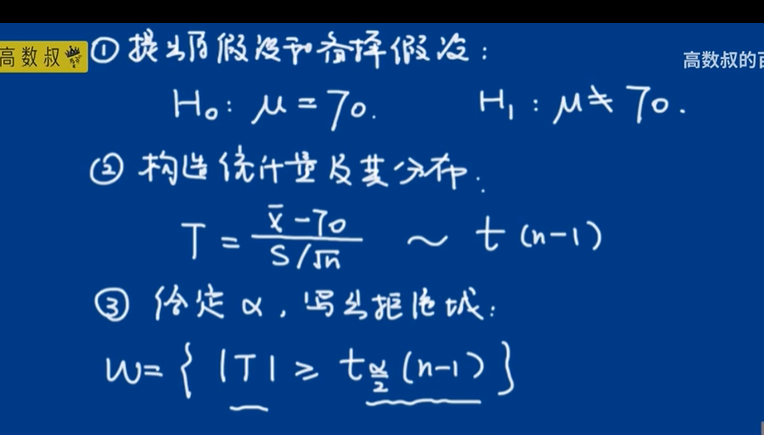 高数叔
高数叔的百
① 提出原假设和备择假设：
H₀: μ = 70.    H₁: μ ≠ 70.
② 构造统计量及其分布：
T = (x̄ - 70) / (S/√n) ~ t(n-1)
③ 给定 α，写出拒绝域：
W = { |T| ≥ t_{α/2}(n-1) }